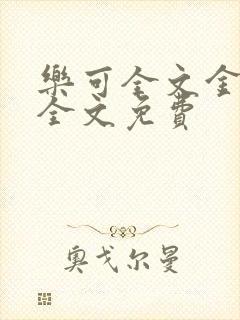 樂可全文全
全文免費
奧戈尔曼